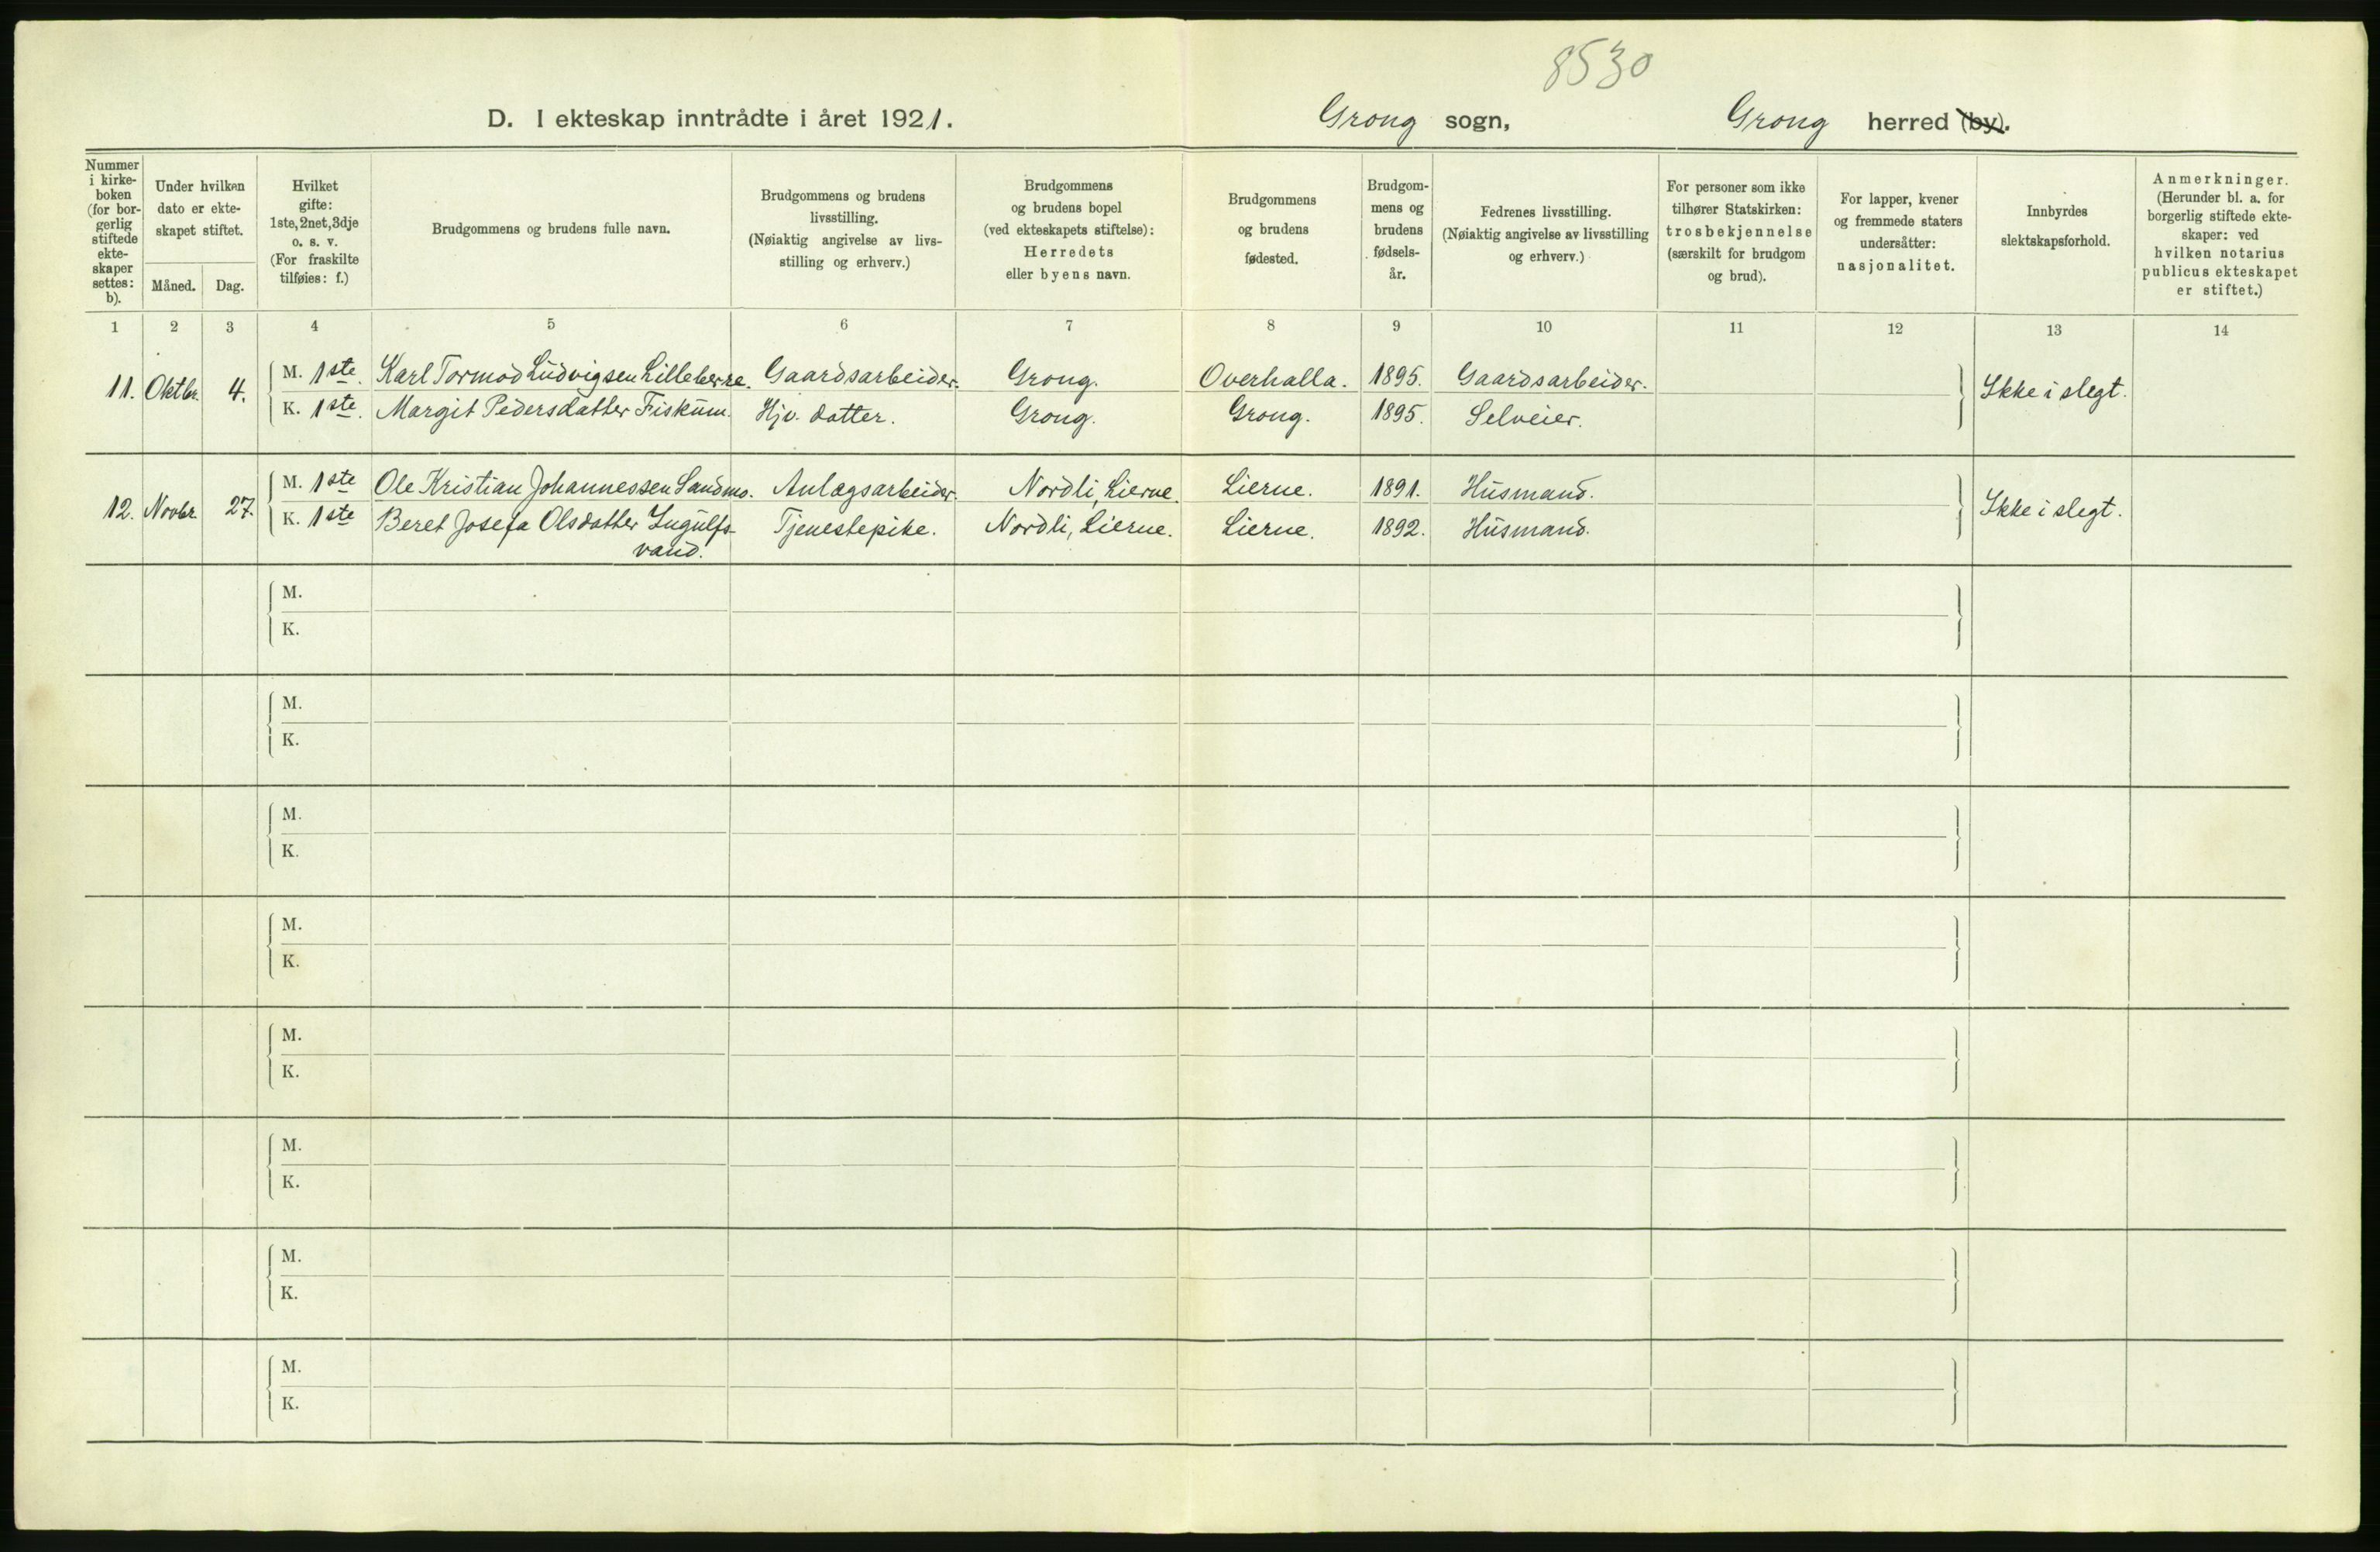 8530
D. I ekteskap inntrådte i året 1921. Grong sogn, Grong herred (by).
Nummer i kirke-boken (for bor-gerlig stiftede ekte-skaper settes: b).
Under hvilken dato er ekte-skapet stiftet.
Måned. Dag.
Hvilket gifte: 1ste, 2net, 3dje o. s. v. (For fraskilte tilføies: f.)
Brudgommens og brudens fulle navn.
Brudgommens og brudens livsstilling. (Nøiaktig angivelse av livs-stilling og erhverv.)
Brudgommens og brudens bopel (ved ekteskapets stiftelse): Herredets eller byens navn.
Brudgommens og brudens fødested.
Brudgom-mens og brudens fødsels-år.
Fedrenes livsstilling. (Nøiaktig angivelse av livsstilling og erhverv.)
For personer som ikke tilhører Statskirken: trosbekjennelse (særskilt for brudgom og brud).
For lapper, kvener og fremmede staters undersåtter: nasjonalitet.
Innbyrdes slektskapsforhold.
Anmerkninger. (Herunder bl. a. for borgerlig stiftede ekte-skaper: ved hvilken notarius publicus ekteskapet er stiftet.)
1 2 3 4 5 6 7 8 9 10 11 12 13 14
11. Oktbr. 4. M. 1ste. Karl Tormod Ludvigsen Lilleberre. Gaardsarbeider. Grong. Overhalla. 1895. Gaardsarbeider. Ikke i slegt.
K. 1ste. Margit Pedersdatter Fiskum. Hjv. datter. Grong. Grong. 1895. Selveier.
12. Novbr. 27. M. 1ste Ole Kristian Johannessen Sandmo. Anlægsarbeider. Nordli, Lierne. Lierne. 1891. Husmand. Ikke i slegt.
K. 1ste Beret Josefa Olsdatter Ingulfs- Tjenestepike. Nordli, Lierne. Lierne. 1892. Husmand.
vand.
M.
K.
M.
K.
M.
K.
M.
K.
M.
K.
M.
K.
M.
K.
M.
K.